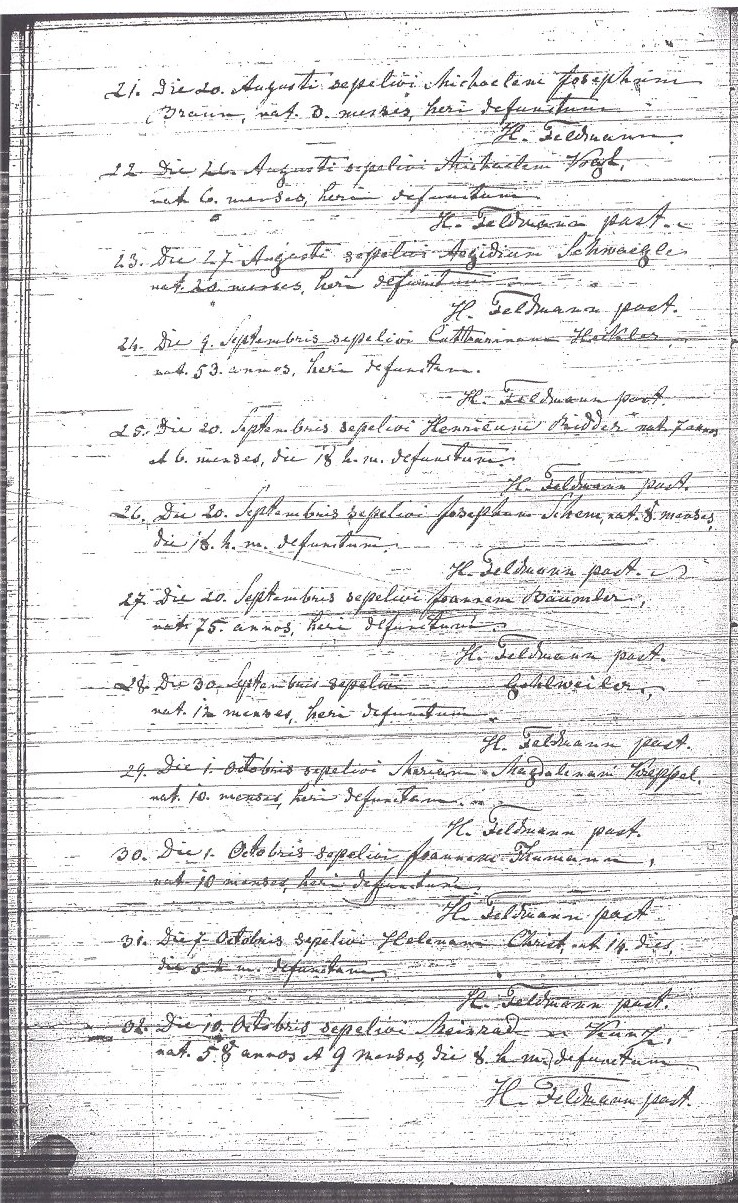 21. Die 20. Augusti sepelivi Michaelem Josephum
Braun, nat. 3. menses, heri defunctum
H. Feldmann.
22. Die 26. Augusti sepelivi Michaelem Vogt,
nat. 6. menses, heri defunctum
H. Feldmann past.
23. Die 27. Augusti sepelivi Aegidium Schwaegle
nat. menses, heri defunctum
H. Feldmann past.
24. Die 9. Septembris sepelivi Catharinam
nat. 53. annos, heri defunctam.
H. Feldmann past.
25. Die 20. Septembris sepelivi Henricum Ridder nat. 7 annos
et 6. menses, die 18 h. m. defunctum.
H. Feldmann past.
26. Die 20. Septembris sepelivi Josephum nat. 8. menses,
die 18. h. m. defunctum.
H. Feldmann past.
27. Die 20. Septembris sepelivi Joannem Bäumler,
nat. 75. annos, heri defunctum.
H. Feldmann past.
28. Die 30. Septembris sepelivi Gohlweiler,
nat. menses, heri defunctum
H. Feldmann past.
29. Die 1. Octobris sepelivi Mariam Magdalenam Kreppel.
nat. 10. menses, heri defunctam.
H. Feldmann past.
30. Die 1. Octobris sepelivi Joannem Thumann,
nat. 10 menses, heri defunctum
H. Feldmann past
31. Die 7. Octobris sepelivi Helenam Christ, nat 14. dies,
die 5 h. m. defunctam.
H. Feldmann past.
32. Die 10. Octobris sepelivi Meinrad
nat. 58 annos et 9 menses, die 8. h. m. defunctum
H. Feldmann past.